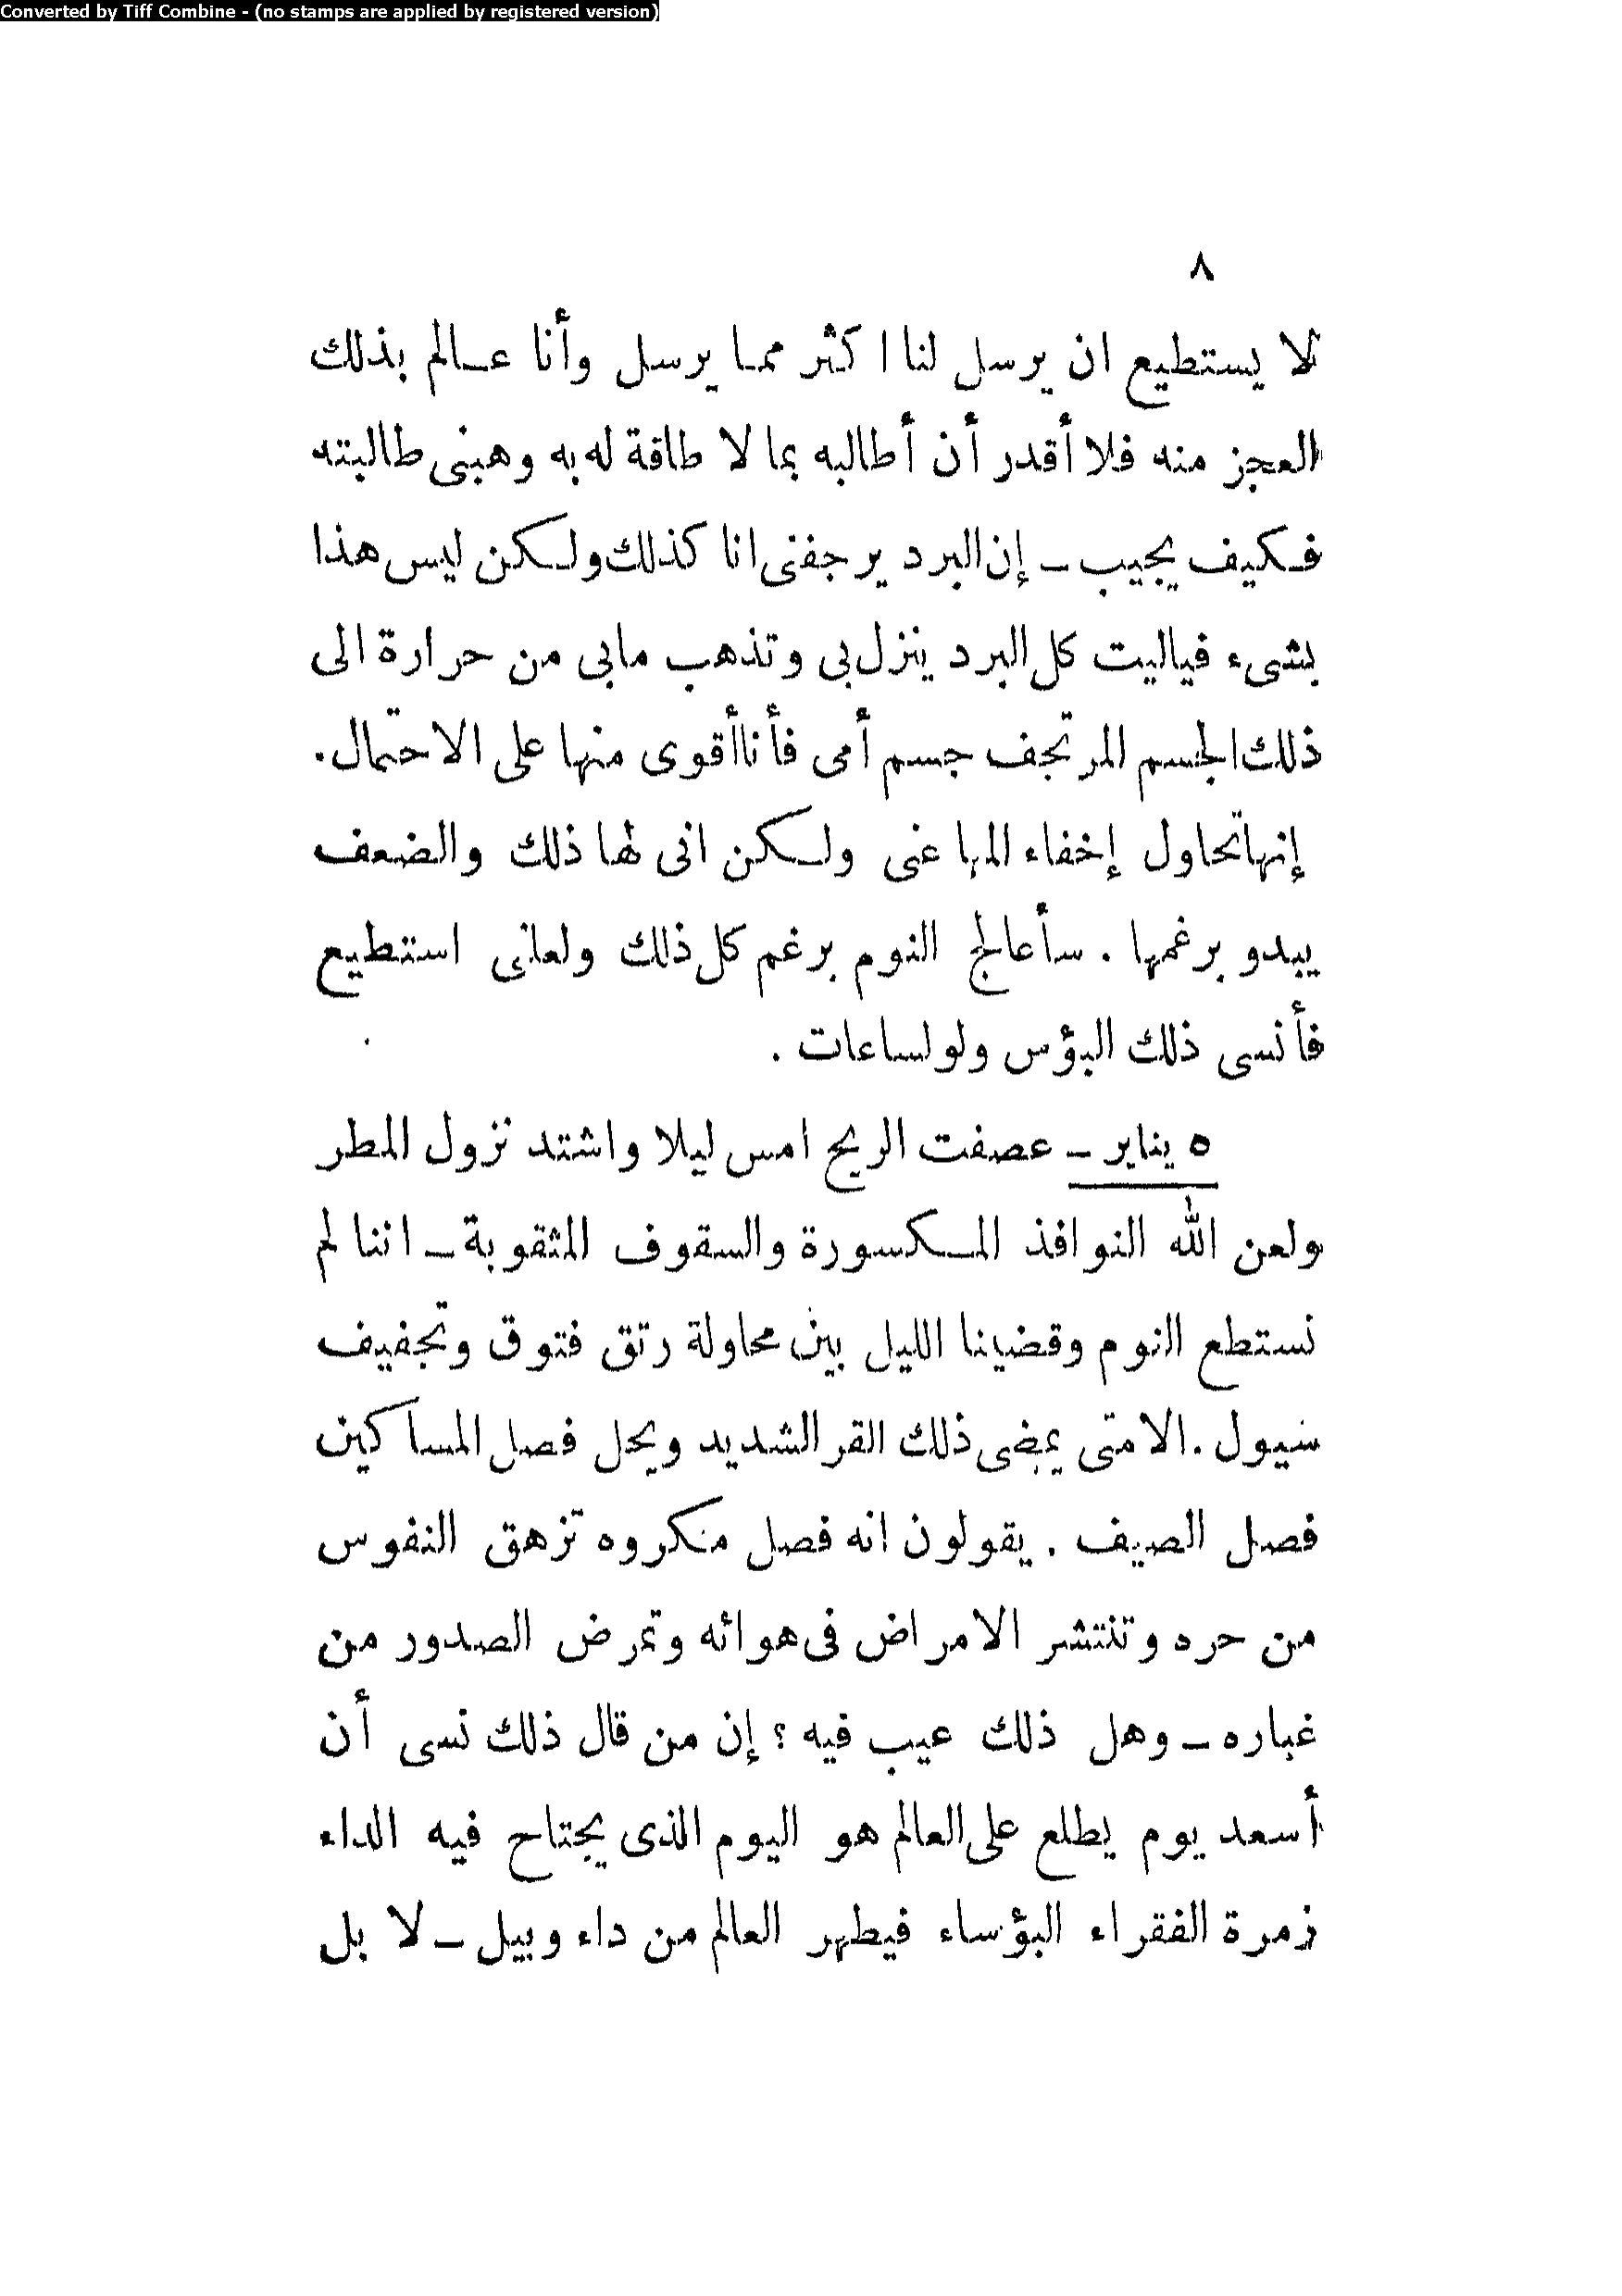 Converted by Tiff Combine - (no stamps are applied by registered version)
٨
لا يستطيع ان يرسل لنا اكثر مما يرسل وأنا عالم بذلك
العجز منه فلا أقدر أن أطالبه بما لا طاقة له به وهبنى طالبته
فكيف يجيب – إن البرد يرجفنى انا كذلك ولكن ليس هذا
بشىء فياليت كل البرد ينزل بى وتذهب مابى من حرارة الى
ذلك الجسم المرتجف جسم أمى فأنا أقوى منها على الاحتمال.
إنها تحاول إخفاء المها عنى ولكن انى لها ذلك والضعف
يبدو برغمها . سأعالج النوم برغم كل ذلك ولعلنى استطيع
فأنسى ذلك البؤس ولو لساعات .
٥ يناير – عصفت الريح امس ليلا واشتد نزول المطر
ولعن الله النوافذ المكسورة والسقوف المثقوبة – اننا لم
نستطع النوم وقضينا الليل بين محاولة رتق فتوق وتجفيف
سيول . الا متى يمضى ذلك القر الشديد ويحل فصل المساكين
فصل الصيف . يقولون انه فصل منكروه تزهق النفوس
من حره وتنتشر الامراض فى هوائه وتمرض الصدور من
غباره – وهل ذلك عيب فيه ؟ إن من قال ذلك نسى أن
أسعد يوم يطلع على العالم هو اليوم الذى يجتاح فيه الداء
زمرة الفقراء البؤساء فيطهر العالم من داء وبيل – لا بل